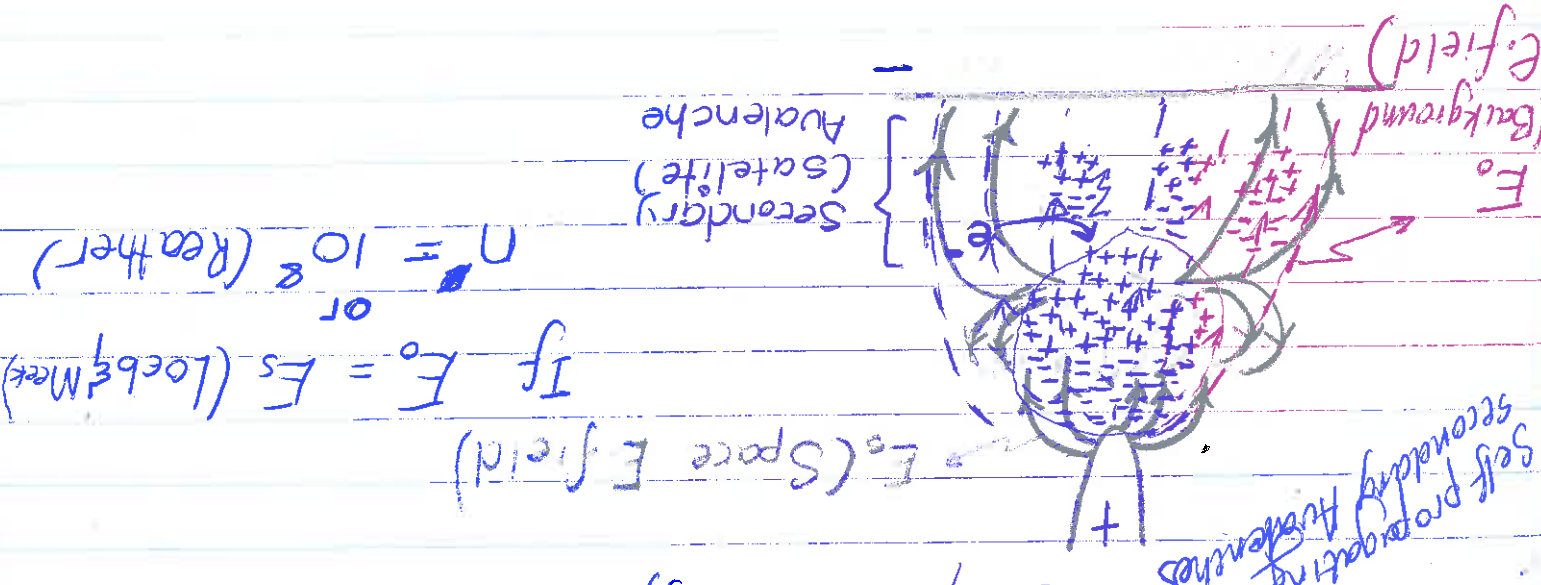 Self propagating
secondary Avalenches
+
Es (Space E field)
If Eo = Es (Loeb & Meek)
or
n = 10⁸ (Reather)
e-
Secondary
(Satelite)
Avalenche
Eo
(Background
e.field)
-